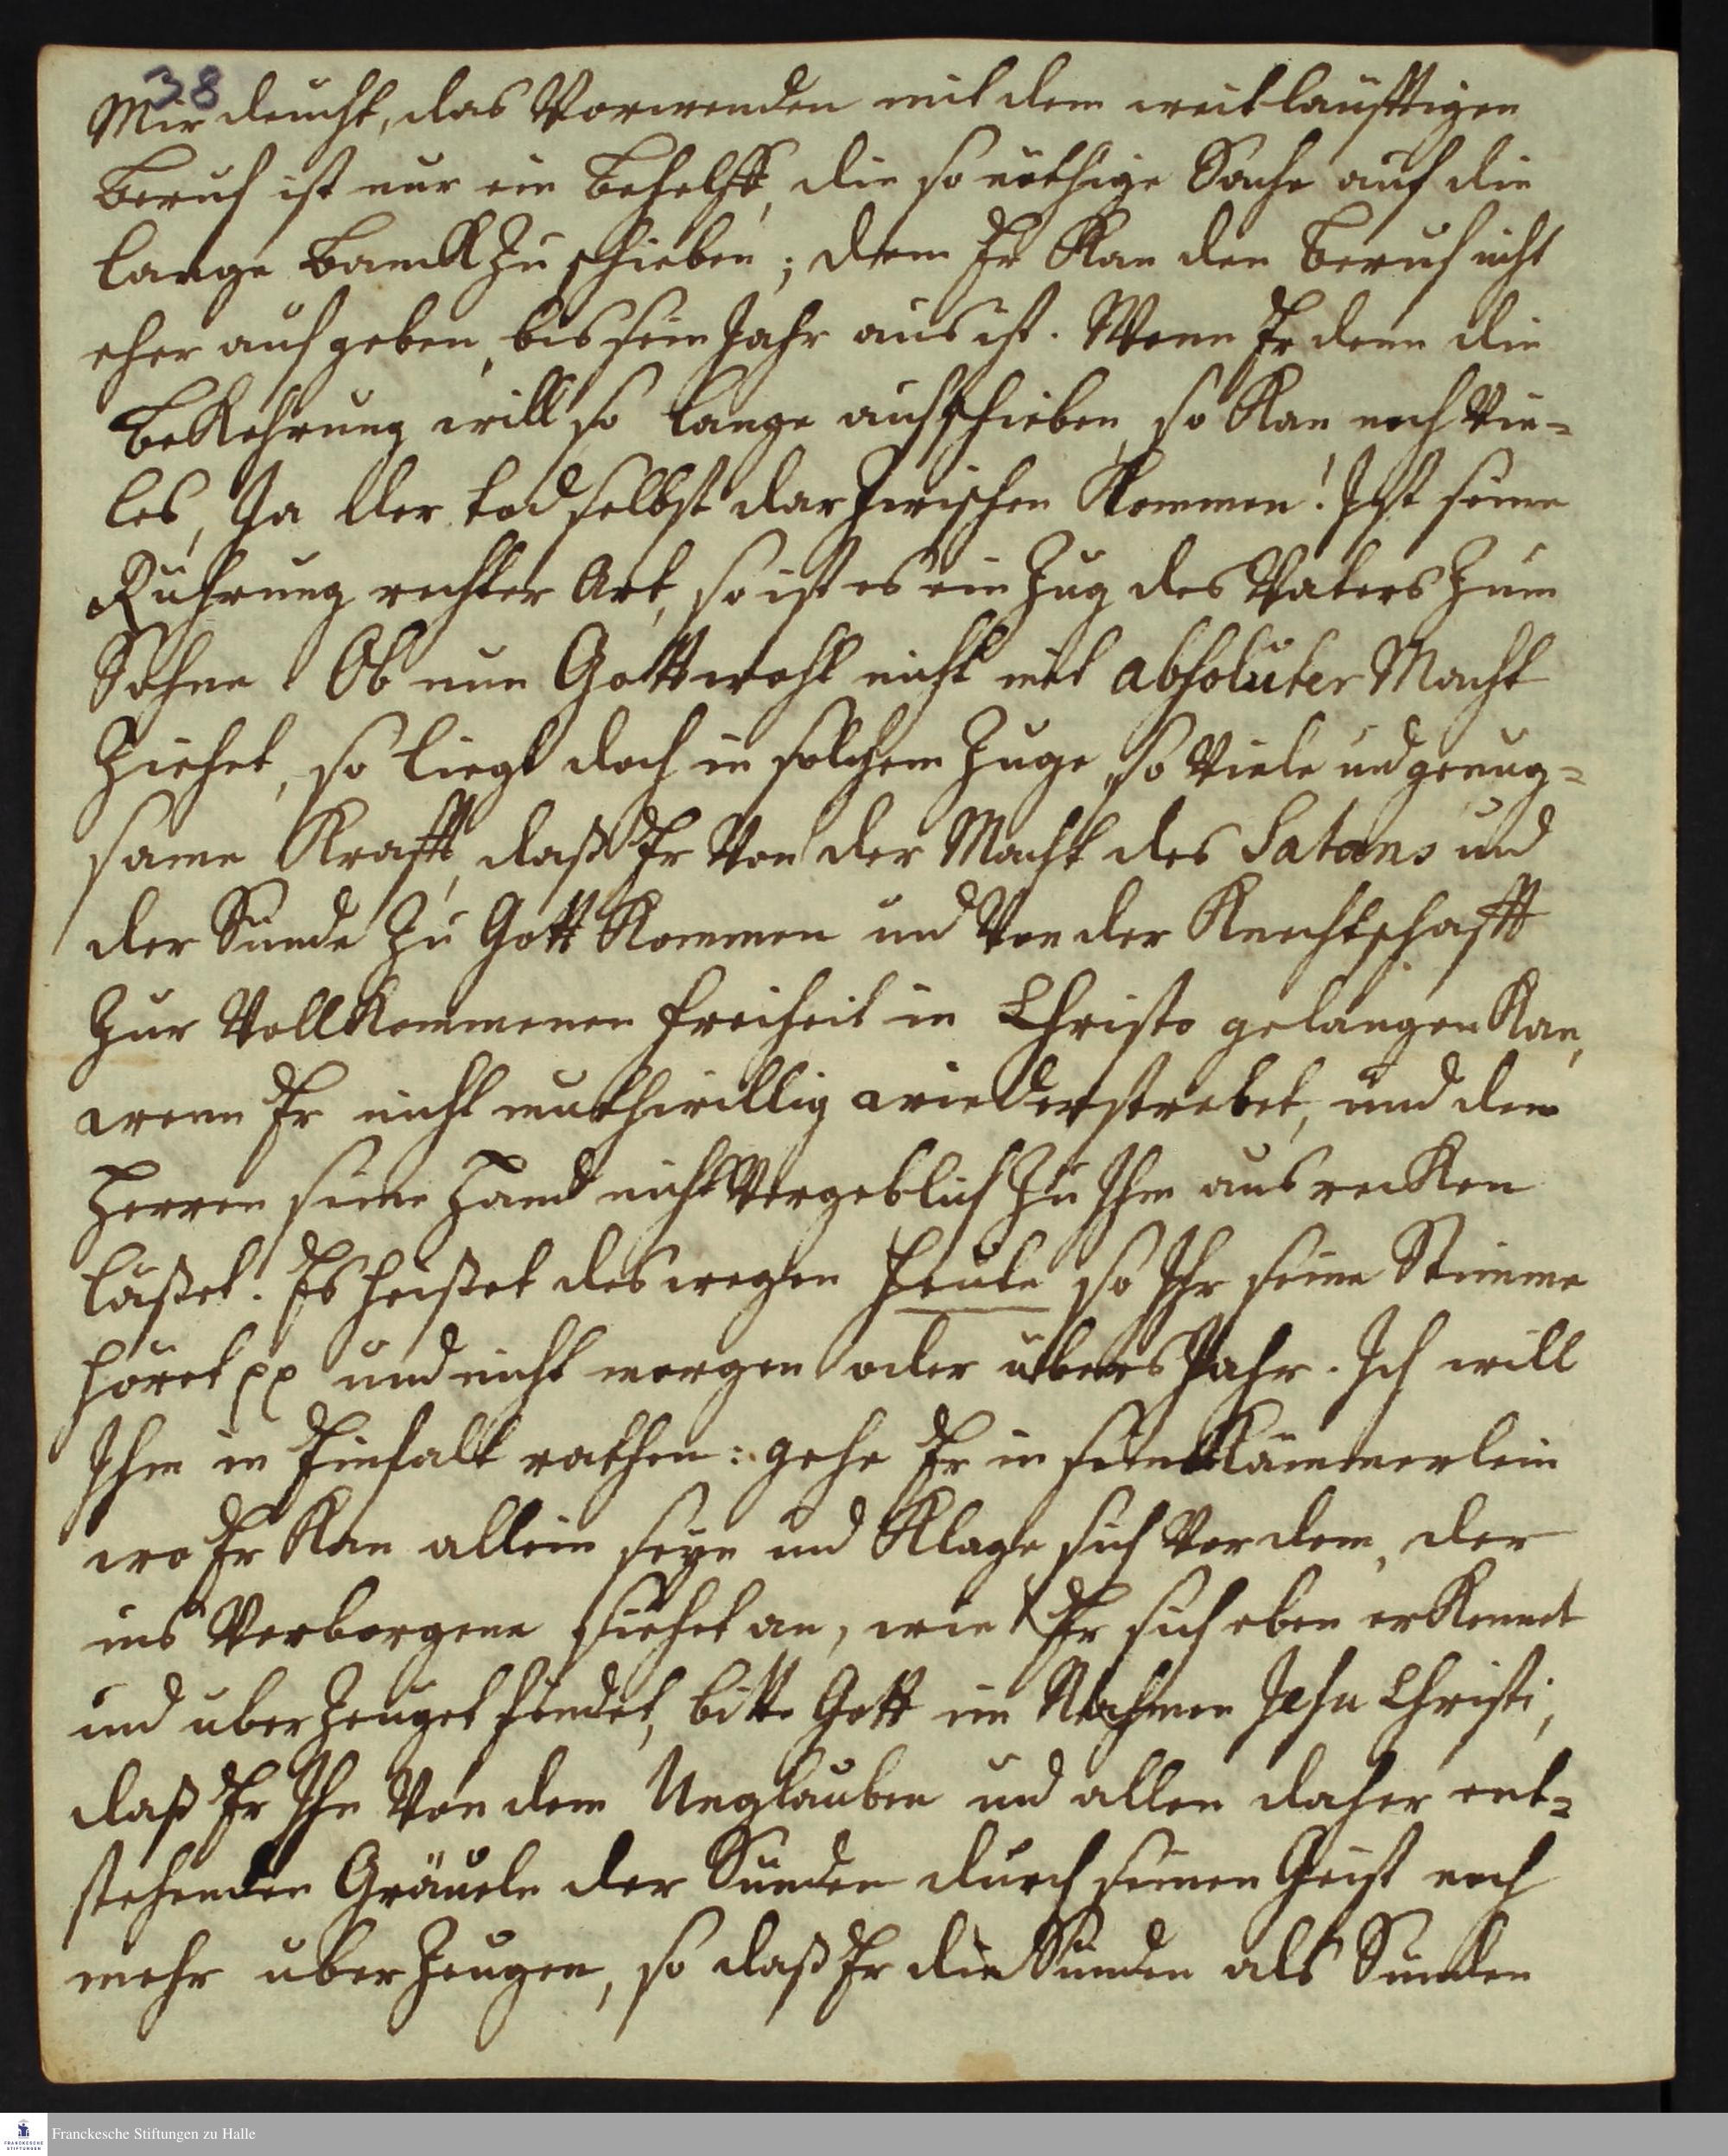 38
Mir deucht, das Vorwenden mit dem weitläufftigen
Beruf ist nur ein Behelff, die so nöthige Sache auf die
lange Banck zu schieben; denn Er kan den Beruf nicht
eher aufgeben, bis sein Jahr aus ist. Wenn Er denn die
Bekehrung will so lange aufschieben, so kan noch vie-
les, Ja der tod selbst darzwischen kommen! Ist seine
Rührung rechter Art, so ist es ein Zug des Vaters zum
Sohne. Ob nun Gott wohl nicht mit absoluter Macht
ziehet, so liegt doch in solchem Zuge so viele und genug-
same Krafft, daß Er von der Macht des Satans und
der Sünde zu Gott kommen und von der Knechtschafft
zur vollkommenen freiheit in Christo gelangen kan,
wenn Er nicht muthwillig wiederstrebet, und den
Herren seine Hand nicht vergeblich zu Ihm ausrecken
läßet. Es heißet deswegen heute so Ihr seine Stimme
höret pp und nicht morgen oder übers Jahr. Ich will
Ihm in Einfalt rathen: gehe Er in sein Kämmerlein
wo Er kan allein seyn und klage sich vor dem, der
ins Verborgene siehet an, wie Er sich eben erkennet
und überzeuget findet, bitte Gott im Nahmen Jesu Christi,
daß Er Ihn von dem Unglauben und allen daher ent-
stehenden Gräueln der Sünden durch seinen Geist noch
mehr überzeugen, so daß Er die Sünden als Sünden
Franckesche Stiftungen zu Halle